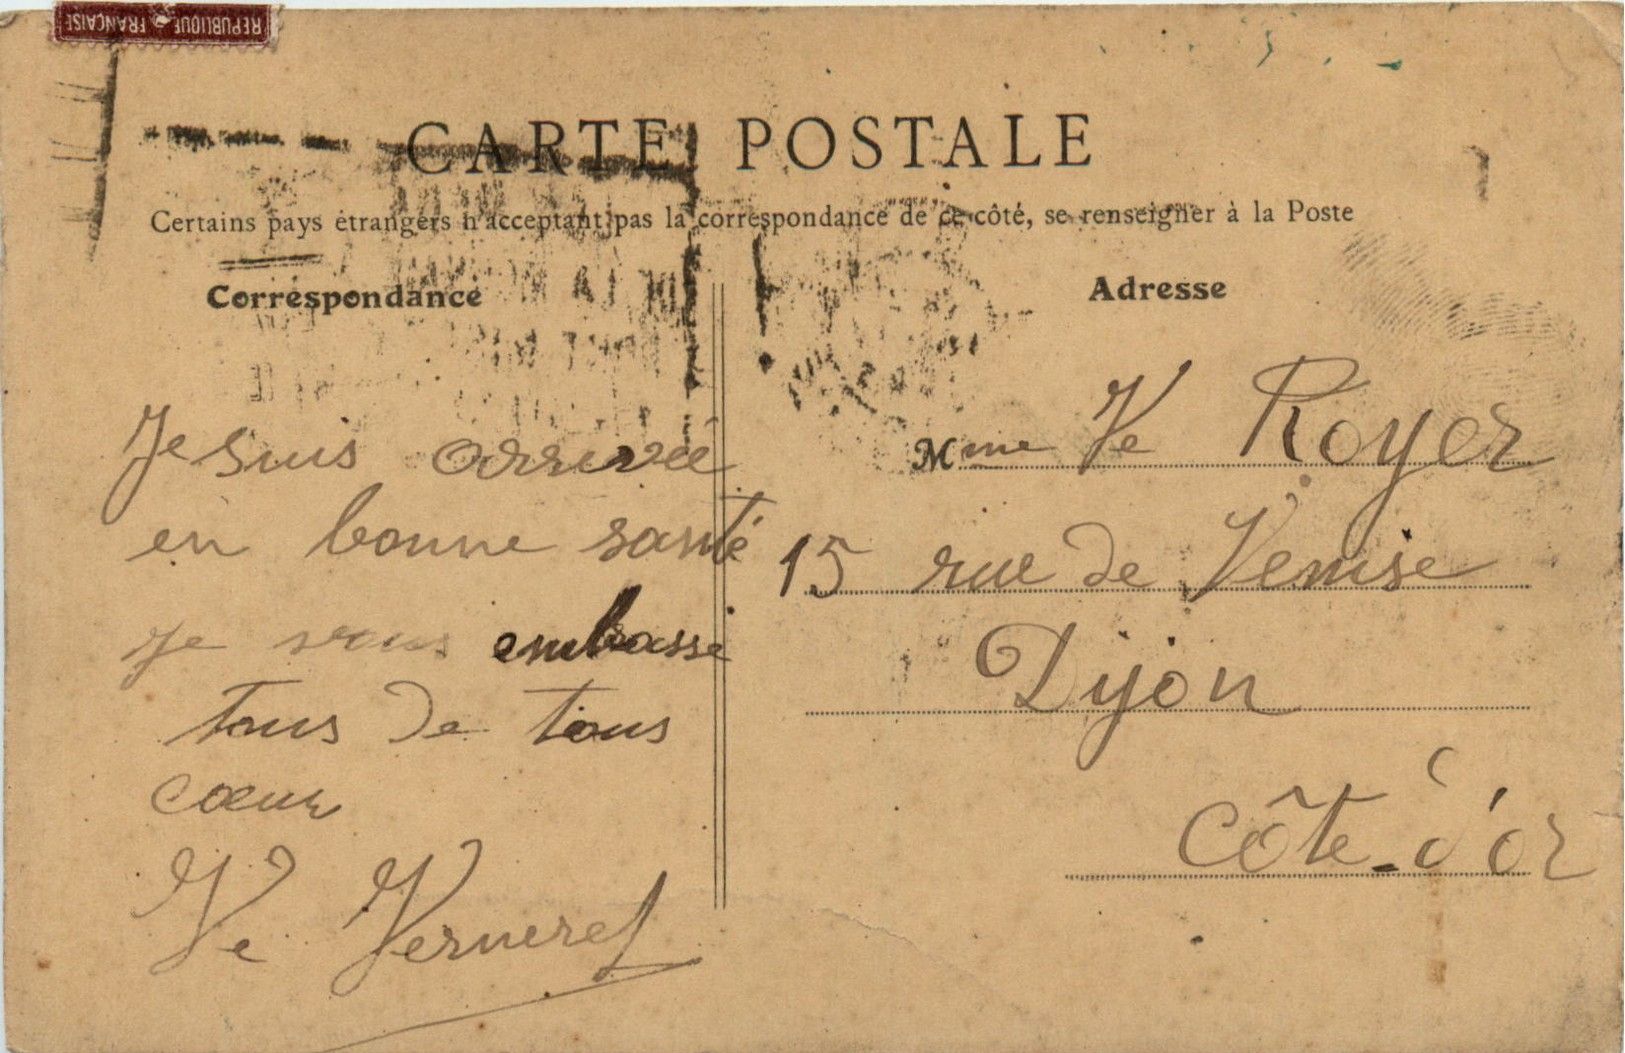 REPUBLIQUE FRANÇAISE
CARTE POSTALE
Certains pays étrangers n'acceptant pas la correspondance de ce côté, se renseigner à la Poste
Correspondance
Je suis arrivée
en bonne santé
je vous embasse
tous de tous
cœur
Ve Verneret
Adresse
Mme Ve Royer
15 rue de Venise
Dijon
Côte-d'or